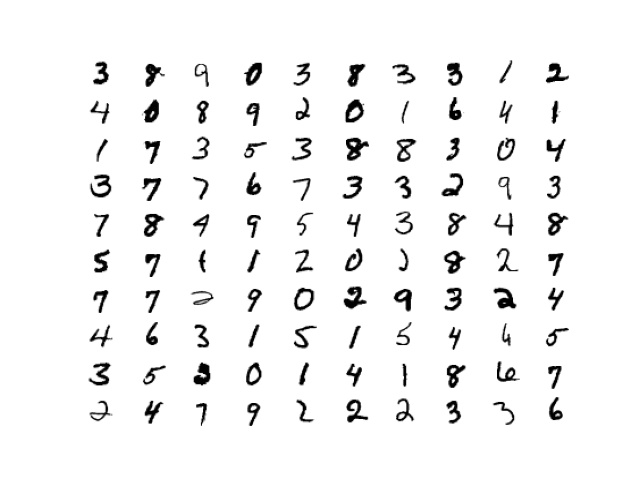 3 8 9 0 3 8 3 3 1 2
4 0 8 9 2 0 1 6 4 1
1 7 3 5 3 8 8 3 0 4
3 7 7 6 7 3 3 2 9 3
7 8 4 9 5 4 3 8 4 8
5 7 1 1 2 0 8 2 7
7 7 2 9 0 2 9 3 2 4
4 6 3 1 5 1 5 4 6 5
3 5 3 0 1 4 1 8 6 7
2 4 7 9 2 2 2 3 3 6